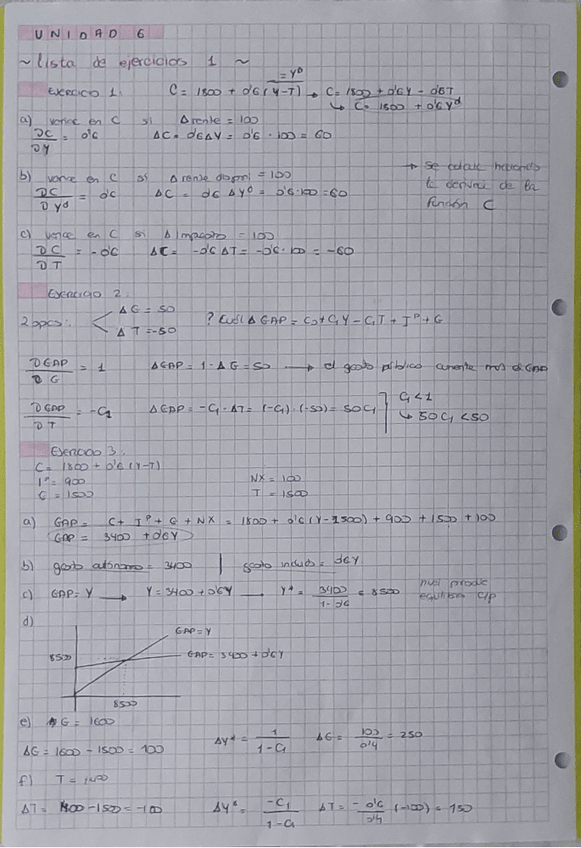 UNIDAD 6
~ lista de ejercicios 1 ~
Ejercicio 1: C = 1800 + 0'6 (Y-T) → C = 1800 + 0'6Y - 0'6T
= Yᴰ
↳ C = 1800 + 0'6 Yᵈ
a) varice en C si Δ renta = 100
DC/DY = 0'6 ΔC = 0'6 ΔY = 0'6 · 100 = 60
b) varice en C si Δ renta dispni = 100
DC/DYᵈ = 0'6 ΔC = 0'6 ΔYᴰ = 0'6·100 = 60
→ se calcula haciendo
la derivada de la
función C
c) varice en C si Δ impuesto = 100
DC/DT = -0'6 ΔC = -0'6 ΔT = -0'6 · 100 = -60
Ejercicio 2:
2 opcs: ΔG = 50
ΔT = -50
? Cuál Δ GAP = C₀ + C₁Y - C₁T + Iᴾ + G
DGAP/DG = 1 ΔGAP = 1 · ΔG = 50 → el gasto público aumenta más el GAP
DGAP/DT = -C₁ ΔGAP = -C₁ · ΔT = (-C₁) · (-50) = 50C₁
C₁ < 1
↳ 50C₁ < 50
Ejercicio 3:
C = 1800 + 0'6 (Y-T)
Iᴾ = 900 NX = 100
G = 1500 T = 1500
a) GAP = C + Iᴾ + G + NX = 1800 + 0'6 (Y-1500) + 900 + 1500 + 100
GAP = 3400 + 0'6Y
b) gasto autónomo = 3400 | gasto inducido = 0'6Y
c) GAP = Y → Y = 3400 + 0'6Y → Y* = 3400/1-0'6 = 8500 nivel produc equilibrio C/P
d)
GAP = Y
8500 GAP = 3400 + 0'6Y
8500
e) G = 1600
ΔG = 1600 - 1500 = 100 ΔY* = 1/1-C₁ ΔG = 100/0'4 = 250
f) T = 1400
ΔT = 1400 - 1500 = -100 ΔY* = -C₁/1-C₁ ΔT = -0'6/0'4 (-100) = 150